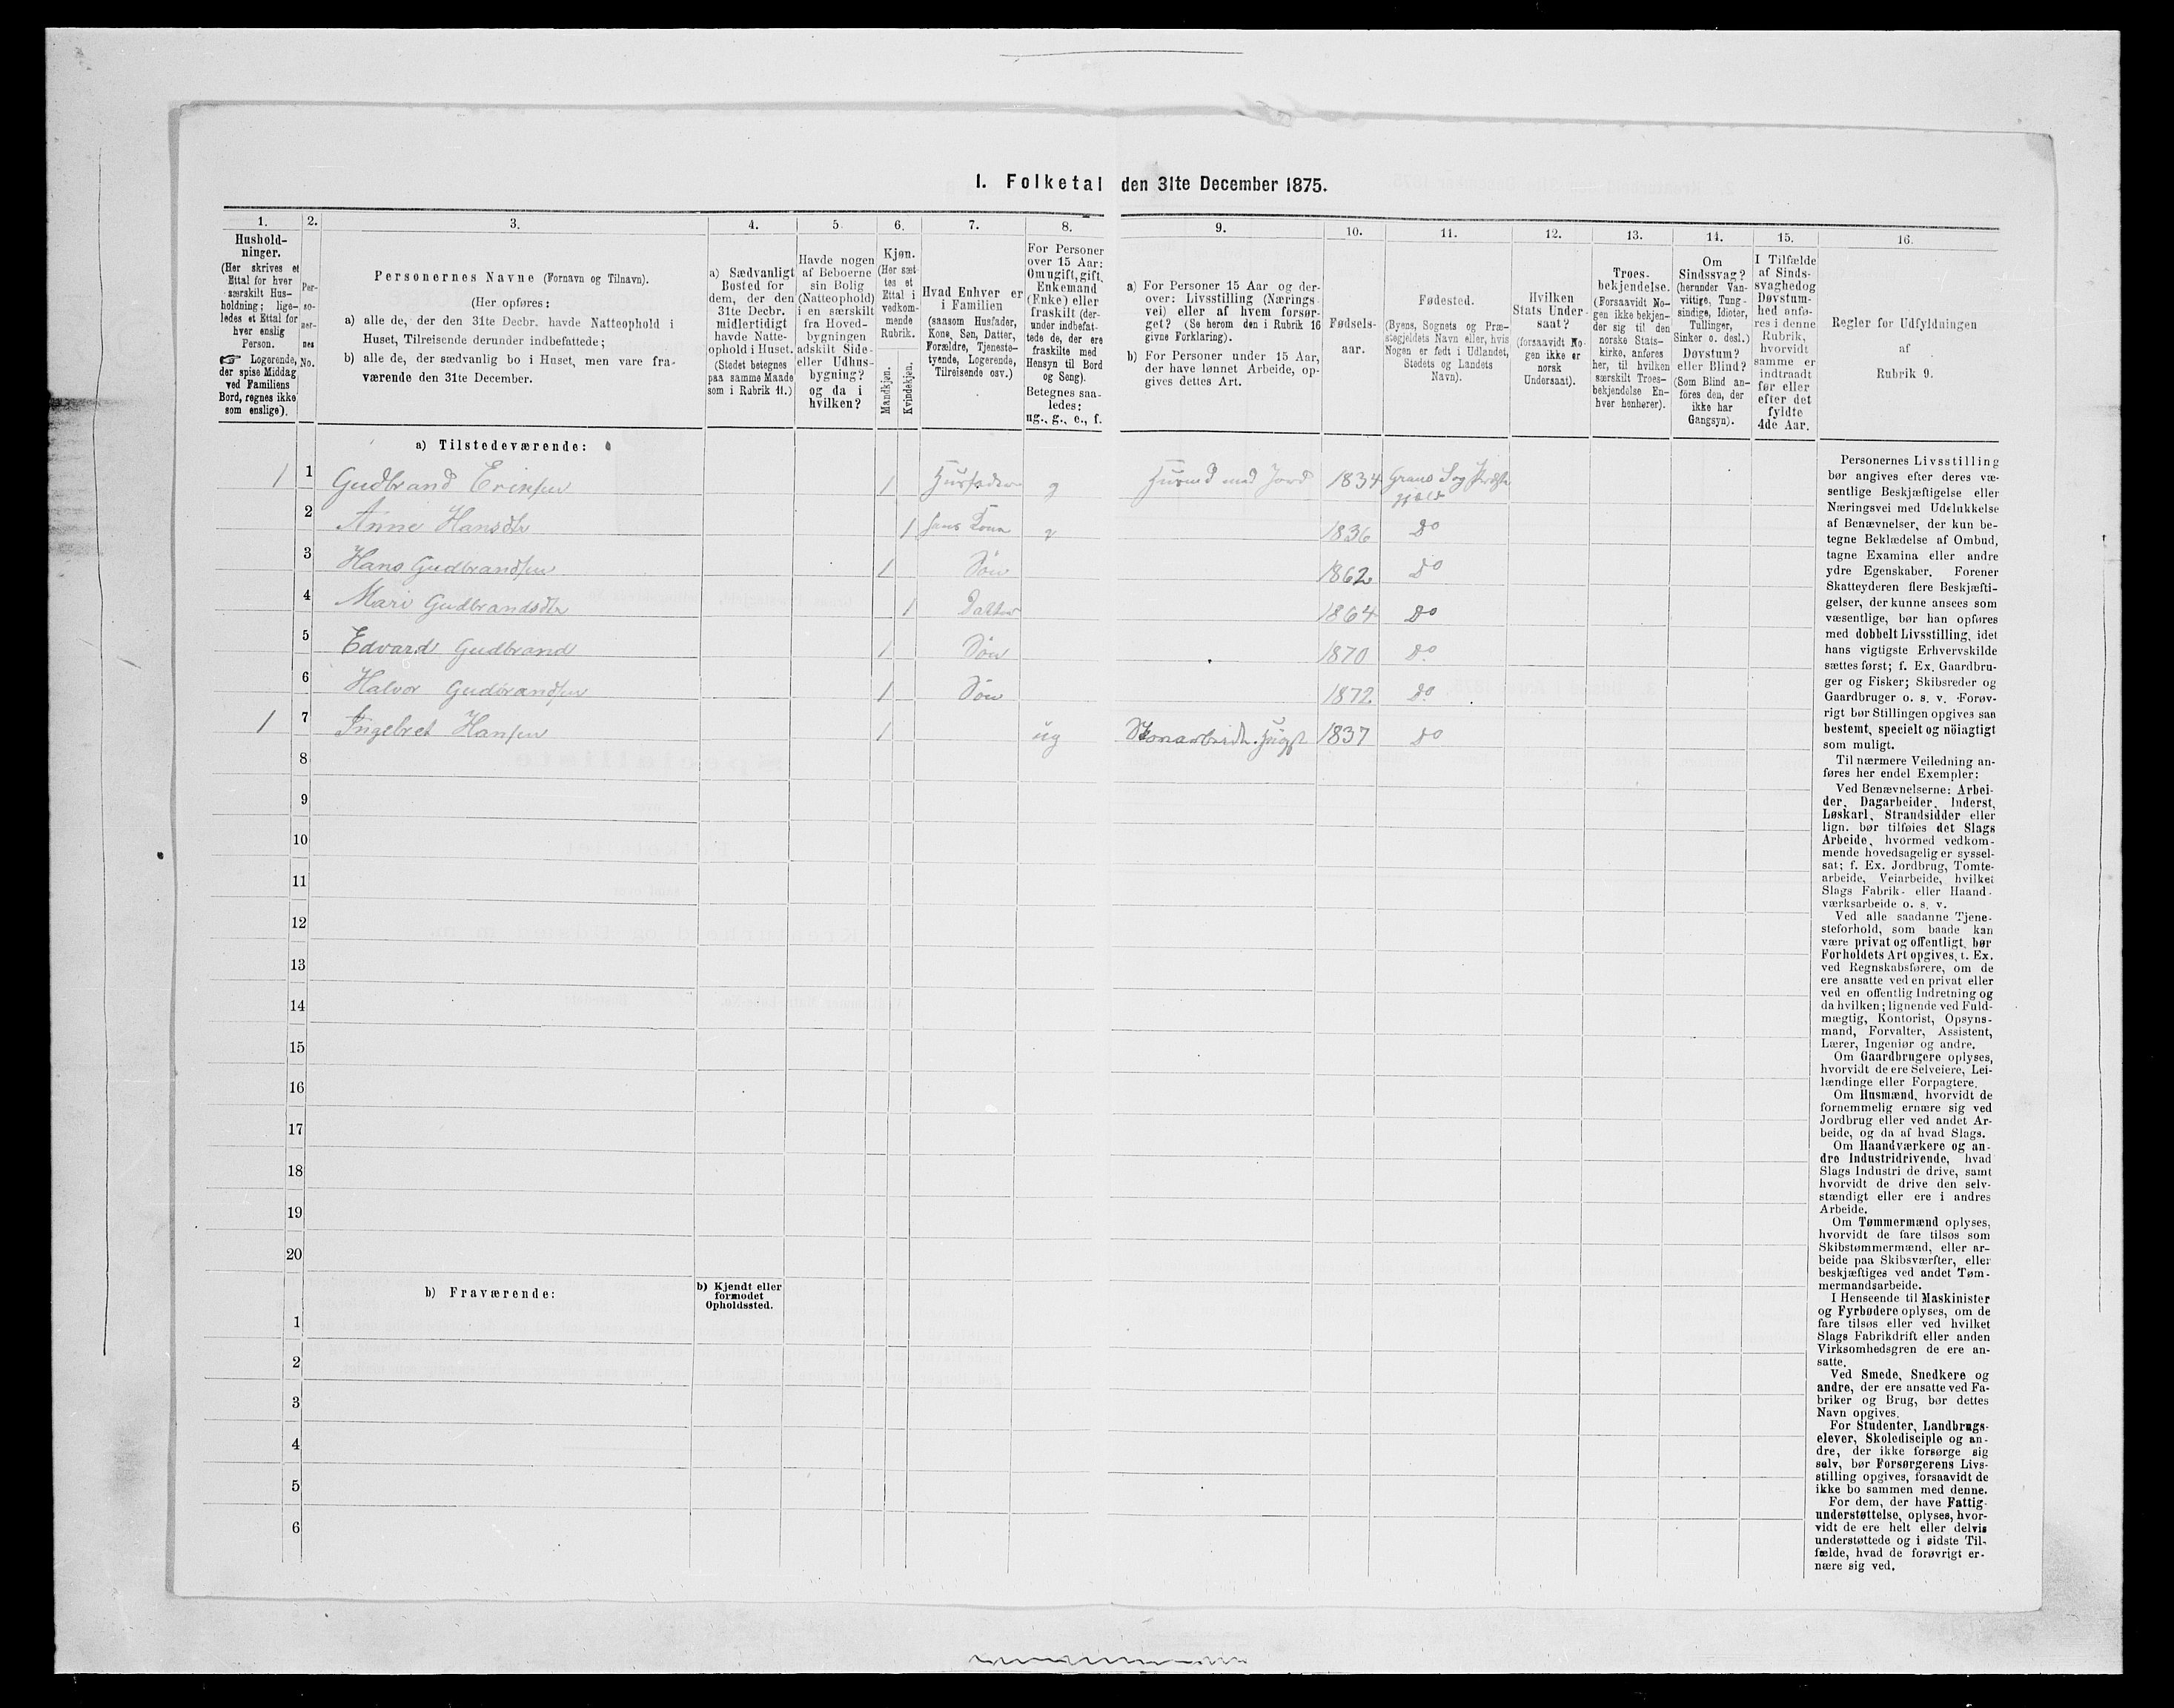 I. Folketal den 31te December 1875.
1.
Hushold-
ninger.
(Her skrives et
Ettal for hver
særskilt Hus-
holdning; lige-
ledes et Ettal for
hver enslig
Person.
☞ Logerende,
der spise Middag
ved Familiens
Bord, regnes ikke
som enslige).
2.
Per-
so-
ner-
nes
No.
3.
Personernes Navne (Fornavn og Tilnavn).
(Her opføres:
a) alle de, der den 31te Decbr. havde Natteophold i
Huset, Tilreisende derunder indbefattede;
b) alle de, der sædvanlig bo i Huset, men vare fra-
værende den 31te December.
4.
a) Sædvanligt
Bosted for
dem, der den
31te Decbr.
midlertidigt
havde Natte-
ophold i Huset.
(Stedet betegnes
paa samme Maade
som i Rubrik 11.)
5.
Havde nogen
af Beboerne
sin Bolig
(Natteophold)
i en særskilt
fra Hoved-
bygningen
adskilt Side-
eller Udhus-
bygning?
og da i
hvilken?
6.
Kjøn.
(Her sæt-
tes et
Ettal i
vedkom-
mende
Rubrik.
Mandkjøn.
Kvindekjøn.
7.
Hvad Enhver er
i Familien
(saasom Husfader,
Kone, Søn, Datter,
Forældre, Tjeneste-
tyende, Logerende,
Tilreisende osv.)
8.
For Personer
over 15 Aar:
Om ugift, gift,
Enkemand
(Enke) eller
fraskilt (der-
under indbefat-
tede de, der ere
fraskilte med
Hensyn til Bord
og Seng).
Betegnes saa-
ledes:
ug., g., e., f.
9.
a) For Personer 15 Aar og der-
over: Livsstilling (Nærings-
vei) eller af hvem forsør-
get? (Se herom den i Rubrik 16
givne Forklaring).
b) For Personer under 15 Aar,
der have lønnet Arbeide, op-
gives dettes Art.
10.
Fødsels-
aar.
11.
Fødested.
(Byens, Sognets og Præ-
stegjeldets Navn eller, hvis
Nogen er født i Udlandet,
Stedets og Landets
Navn).
12.
Hvilken
Stats Under-
saat?
(forsaavidt No-
gen ikke er
norsk
Undersaat).
13.
Troes-
bekjendelse.
(Forsaavidt No-
gen ikke bekjen-
der sig til den
norske Stats-
kirke, anføres
her, til hvilken
særskilt Troes-
bekjendelse En-
hver henhører).
14.
Om
Sindssvag?
(herunder Van-
vittige, Tung-
sindige, Idioter,
Tullinger,
Sinker o. desl.)
Døvstum?
eller Blind?
(Som Blind an-
føres den, der
ikke har
Gangsyn).
15.
I Tilfælde
af Sinds-
svaghed og
Døvstum-
hed anfø-
res i denne
Rubrik,
hvorvidt
samme er
indtraadt
før eller
efter det
fyldte
4de Aar.
16.
Regler for Udfyldningen
af
Rubrik 9.
a) Tilstedeværende:
1 1 Gudbrand Eriksen 1 Husfader g Husmd med Jord 1834 Grans Sog Præste
gjeld
2 Anne Hansdtr 1 hans Kone g 1836 Do
3 Hans Gudbrandsen 1 Søn 1862 Do
4 Mari Gudbrandsdtr 1 Datter 1864 Do
5 Edvard Gudbrand 1 Søn 1870 Do
6 Halvor Gudbrandsen 1 Søn 1872 Do
1 7 Ingebret Hansen 1 ug 1837 Do
8
9
10
11
12
13
14
15
16
17
18
19
20
b) Fraværende:
b) Kjendt eller
formodet
Opholdssted.
1
2
3
4
5
6
Personernes Livsstilling
bør angives efter deres væ-
sentlige Beskjæftigelse eller
Næringsvei med Udelukkelse
af Benævnelser, der kun be-
tegne Beklædelse af Ombud,
tagne Examina eller andre
ydre Egenskaber. Forener
Skatteyderen flere Beskjæfti-
gelser, der kunne ansees som
væsentlige, bør han opføres
med dobbelt Livsstilling, idet
hans vigtigste Erhvervskilde
sættes først; f. Ex. Gaardbru-
ger og Fisker; Skibsreder og
Gaardbruger o. s. v. Forøv-
rigt bør Stillingen opgives saa
bestemt, specielt og nöiagtigt
som muligt.
Til nærmere Veiledning an-
føres her endel Exempler:
Ved Benævnelserne: Arbei-
der, Dagarbeider, Inderst,
Løskarl, Strandsidder eller
lign. bør tilføies det Slags
Arbeide, hvormed vedkom-
mende hovedsagelig er syssel-
sat; f. Ex. Jordbrug, Tomte-
arbeide, Veiarbeide, hvilket
Slags Fabrik- eller Haand-
værksarbeide o. s. v.
Ved alle saadanne Tjene-
steforhold, som baade kan
være privat og offentligt, bør
Forholdets Art opgives, t. Ex.
ved Regnskabsførere, om de
ere ansatte ved en privat eller
ved en offentlig Indretning og
da hvilken; lignende ved Fuld-
mægtig, Kontorist, Opsyns-
mand, Forvalter, Assistent,
Lærer, Ingeniør og andre.
Om Gaardbrugere oplyses,
hvorvidt de ere Selveiere, Lei-
lændinge eller Forpagtere.
Om Husmænd, hvorvidt de
fornemmelig ernære sig ved
Jordbrug eller ved andet Ar-
beide, og da af hvad Slags.
Om Haandværkere og an-
dre Industridrivende, hvad
Slags Industri de drive, samt
hvorvidt de drive den selv-
stændigt eller ere i andres
Arbeide.
Om Tømmermænd oplyses,
hvorvidt de fare tilsøs som
Skibstømmermænd, eller ar-
beide paa Skibsværfter, eller
beskjæftiges ved andet Tøm-
mermandsarbeide.
I Henseende til Maskinister
og Fyrbødere oplyses, om de
fare tilsøs eller ved hvilket
Slags Fabrikdrift eller anden
Virksomhedsgren de ere an-
satte.
Ved Smede, Snedkere og
andre, der ere ansatte ved Fa-
briker og Brug, bør dettes
Navn opgives.
For Studenter, Landbrugs-
elever, Skoledisciple og an-
dre, der ikke forsørge sig
selv, bør Forsørgerens Livs-
stilling opgives, forsaavidt de
ikke bo sammen med denne.
For dem, der have Fattig-
understøttelse, oplyses, hvor-
vidt de ere helt eller delvis
understøttede og i sidste Til-
fælde, hvad de forøvrigt er-
nære sig ved.